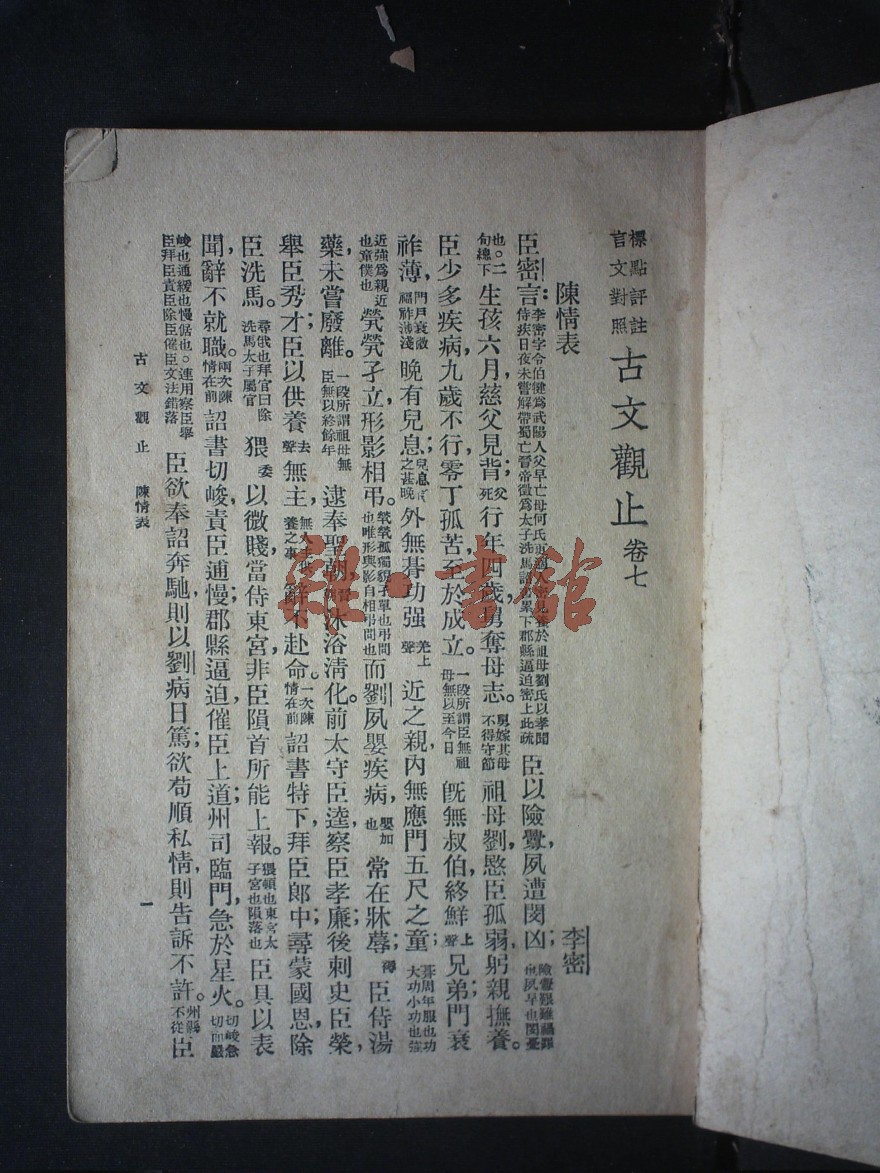 標點評註
言文對照
古文觀止 卷七
陳情表
李密
臣密言：李密字令伯犍爲武陽人父早亡母何氏更適人密見養於祖母劉氏以孝聞侍疾日夜未嘗解帶蜀亡晉帝徵爲太子洗馬詔書累下郡縣逼迫密上此疏臣以險釁，夙遭閔凶；險釁艱難禍罪也夙早也閔憂
也。二句總下生孩六月，慈父見背；父死行年四歲，舅奪母志。舅嫁其母不得守節祖母劉，愍臣孤弱，躬親撫養。
臣少多疾病，九歲不行，零丁孤苦，至於成立。一段所謂臣無祖母無以至今日旣無叔伯，終鮮上聲兄弟；門衰
祚薄，門戶衰微福祚淺薄晚有兒息；兒息之甚晚外無朞功强羌上聲近之親，內無應門五尺之童；朞周年服也功大功小功也强
近强爲親近也童僕也煢煢孑立，形影相弔。煢煢孤獨貌孑單也弔問也唯形與影自相弔問也而劉夙嬰疾病，嬰加也常在牀蓐；褥臣侍湯
藥，未嘗廢離。一段所謂祖母無臣無以終餘年逮奉聖朝，沐浴淸化。前太守臣逵，察臣孝廉；後刺史臣榮，
舉臣秀才；臣以供養去聲無主，無人主供養之事辭不赴命。一次陳情在前詔書特下，拜臣郎中；尋蒙國恩，除
臣洗馬。尋俄也拜官曰除洗馬太子屬官猥委以微賤，當侍東宮，非臣隕首所能上報。猥頓也東宮太子宮也隕落也臣具以表
聞，辭不就職。兩次陳情在前詔書切峻，責臣逋慢；郡縣逼迫，催臣上道；州司臨門，急於星火。切峻急切而嚴
峻也逋緩也慢倨也。連用察臣舉臣拜臣責臣除臣催臣文法錯落臣欲奉詔奔馳，則以劉病日篤；欲苟順私情，則告訴不許。州縣不從臣
古文觀止 陳情表
一
雜·書館